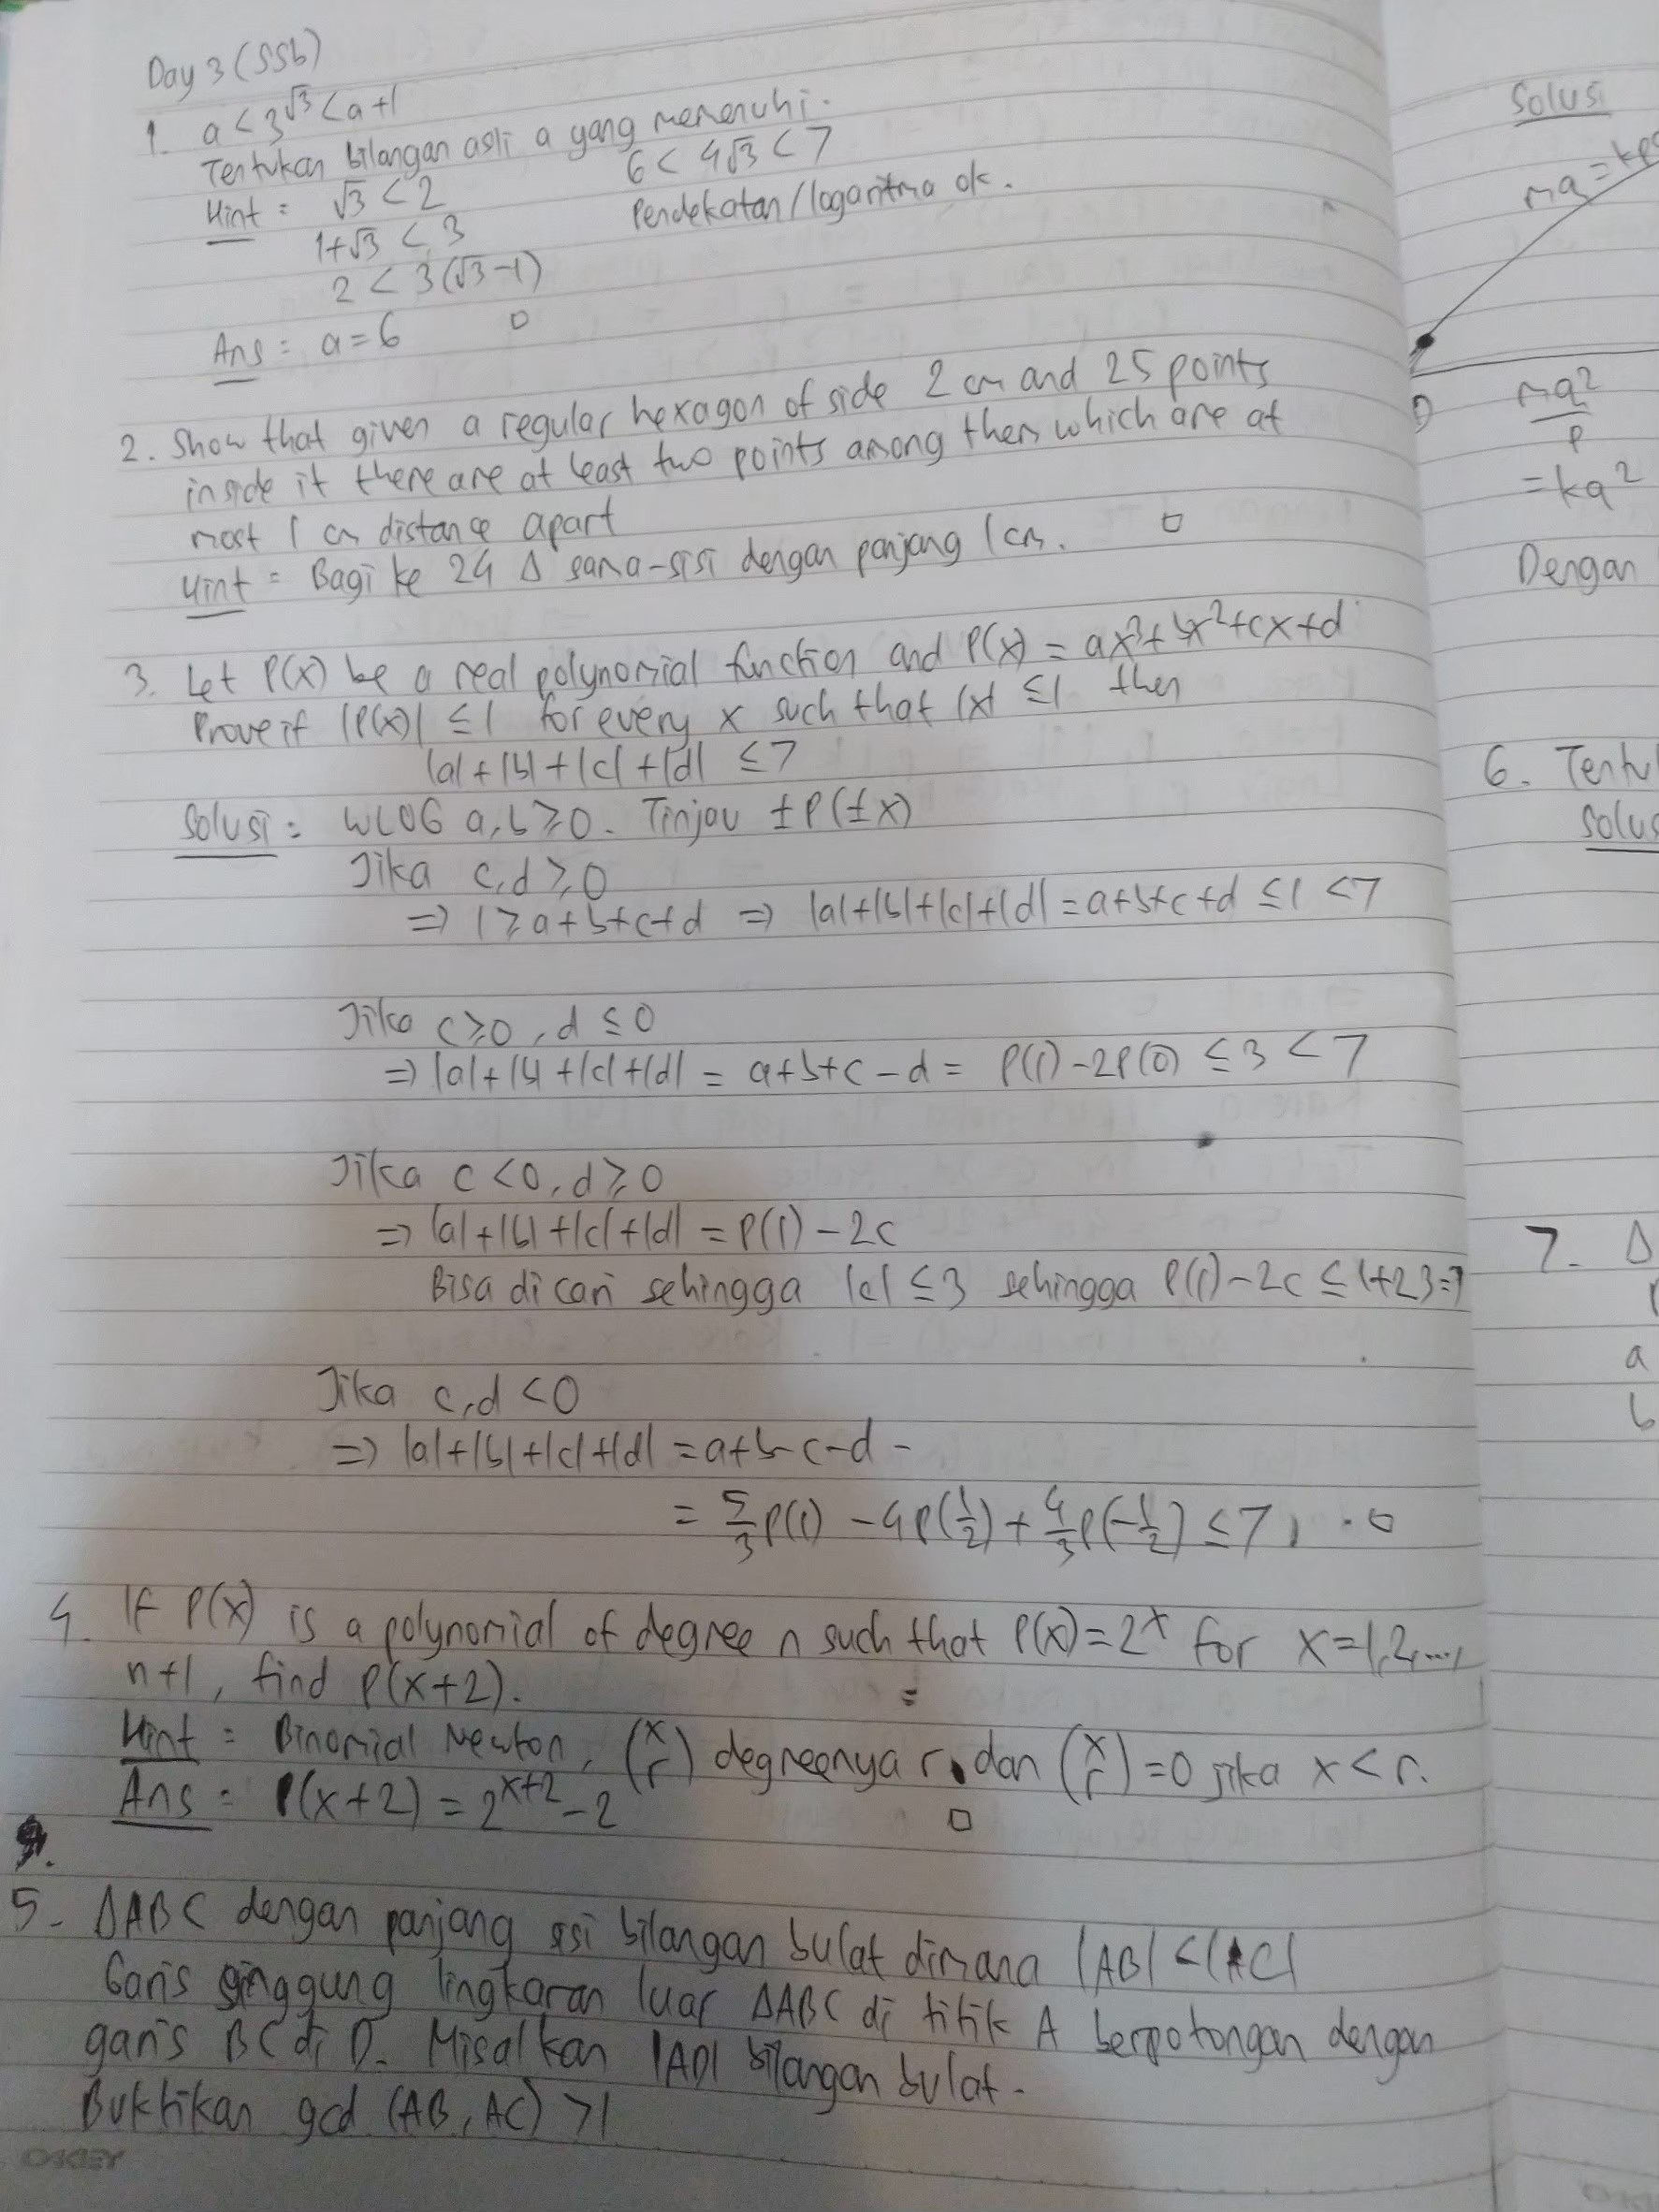 Day 3 (SSb)
1. a < 3^√3 < a+1
Tentukan bilangan asli a yang memenuhi.
Hint = √3 < 2
6 < 4√3 < 7
1+√3 < 3
Pendekatan/logaritma ok.
2 < 3(√3-1)
Ans = a = 6 □
2. Show that given a regular hexagon of side 2 cm and 25 points
inside it there are at least two points among them which are at
most 1 cm distance apart
Hint = Bagi ke 24 Δ sama-sisi dengan panjang 1 cm. □
3. Let P(x) be a real polynomial function and P(x) = ax³+bx²+cx+d
Prove if |P(x)| ≤ 1 for every x such that |x| ≤ 1 then
|a|+|b|+|c|+|d| ≤ 7
Solusi = WLOG a,b ≥ 0. Tinjau ±P(±x)
Jika c,d ≥ 0
⇒ 1 ≥ a+b+c+d ⇒ |a|+|b|+|c|+|d| = a+b+c+d ≤ 1 < 7
Jika c ≥ 0, d ≤ 0
⇒ |a|+|b|+|c|+|d| = a+b+c-d = P(1)-2P(0) ≤ 3 < 7
Jika c < 0, d ≥ 0
⇒ |a|+|b|+|c|+|d| = P(1)-2c
Bisa dicari sehingga |c| ≤ 3 sehingga P(1)-2c ≤ 1+2 3=7
Jika c,d < 0
⇒ |a|+|b|+|c|+|d| = a+b-c-d -
= 5/3 P(1) - 4P(1/2) + 4/3 P(-1/2) ≤ 7, . □
4. If P(x) is a polynomial of degree n such that P(x) = 2^x for x = 1,2,...,
n+1, find P(x+2).
Hint = Binomial Newton, (x r) degreenya r, dan (x r) = 0 jika x < r.
Ans = P(x+2) = 2^(x+2) - 2 □
5. ΔABC dengan panjang sisi bilangan bulat dimana |AB| < |AC|
Garis singgung lingkaran luar ΔABC di titik A berpotongan dengan
garis BC di D. Misalkan |AD| bilangan bulat.
Buktikan gcd (AB, AC) > 1
OKEY
Solusi
ma²/p
= ka²
Dengan
6.
7. Δ
a
b